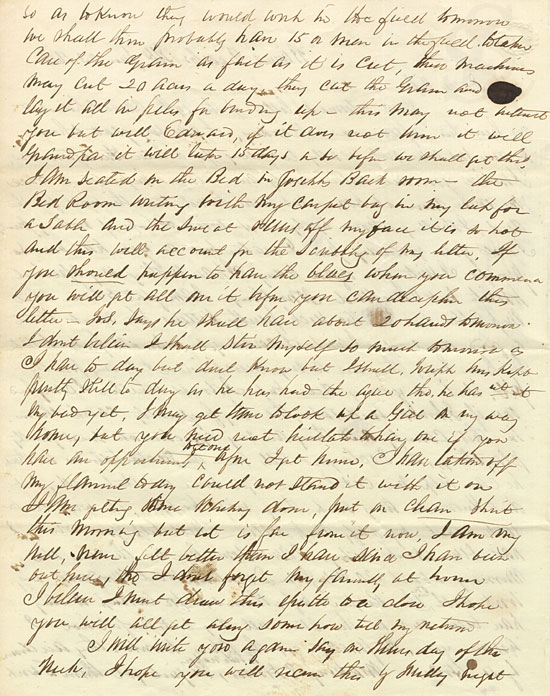 so as to know they would work in the field tomorrow
we shall then probably have 15 or men in the field to take
care of the Grain as fast as it is cut, these machines
may cut 20 acres a day they cut the Grain and
lay it all in piles for binding up - this may not interest
you but will Edward, if it does not him it will
Grandpa it will take 15 days or so before we shall get thro.
I am seated on the Bed in Josephs Back room - the
Bed Room writing with my carpet bag in my lap for
a Table and the sweat runs off my face it is so hot
and this will account for the scrubby of my letter, If
you should happen to have the blues when you commence
you will get all over it before you can decipher this
letter - Jos. says he shall have about 20 hands tomorrow
I dont believe I shall stir myself so much tomorrow as
I have to day but dont know but I shall, Joseph has kept
pretty still to day as he has had the ague tho. he has not it
very bad yet, I may get time to look up a Girl on my way
home, but you need not hesitate to hire one if you
have an opportunity before I get home, I have taken off
my flannel to day could not stand it with it on
I am getting some washing done, put on clean shirt
this morning but it is far from it now, I am very
well, never felt better than I have since I have been
out here, tho I dont forget my family at home
I believe I must draw this epistle to a close I hope
you will all get along some how till my return
I will write you again say on Thursday of this
week, I hope you will receive this by Friday night